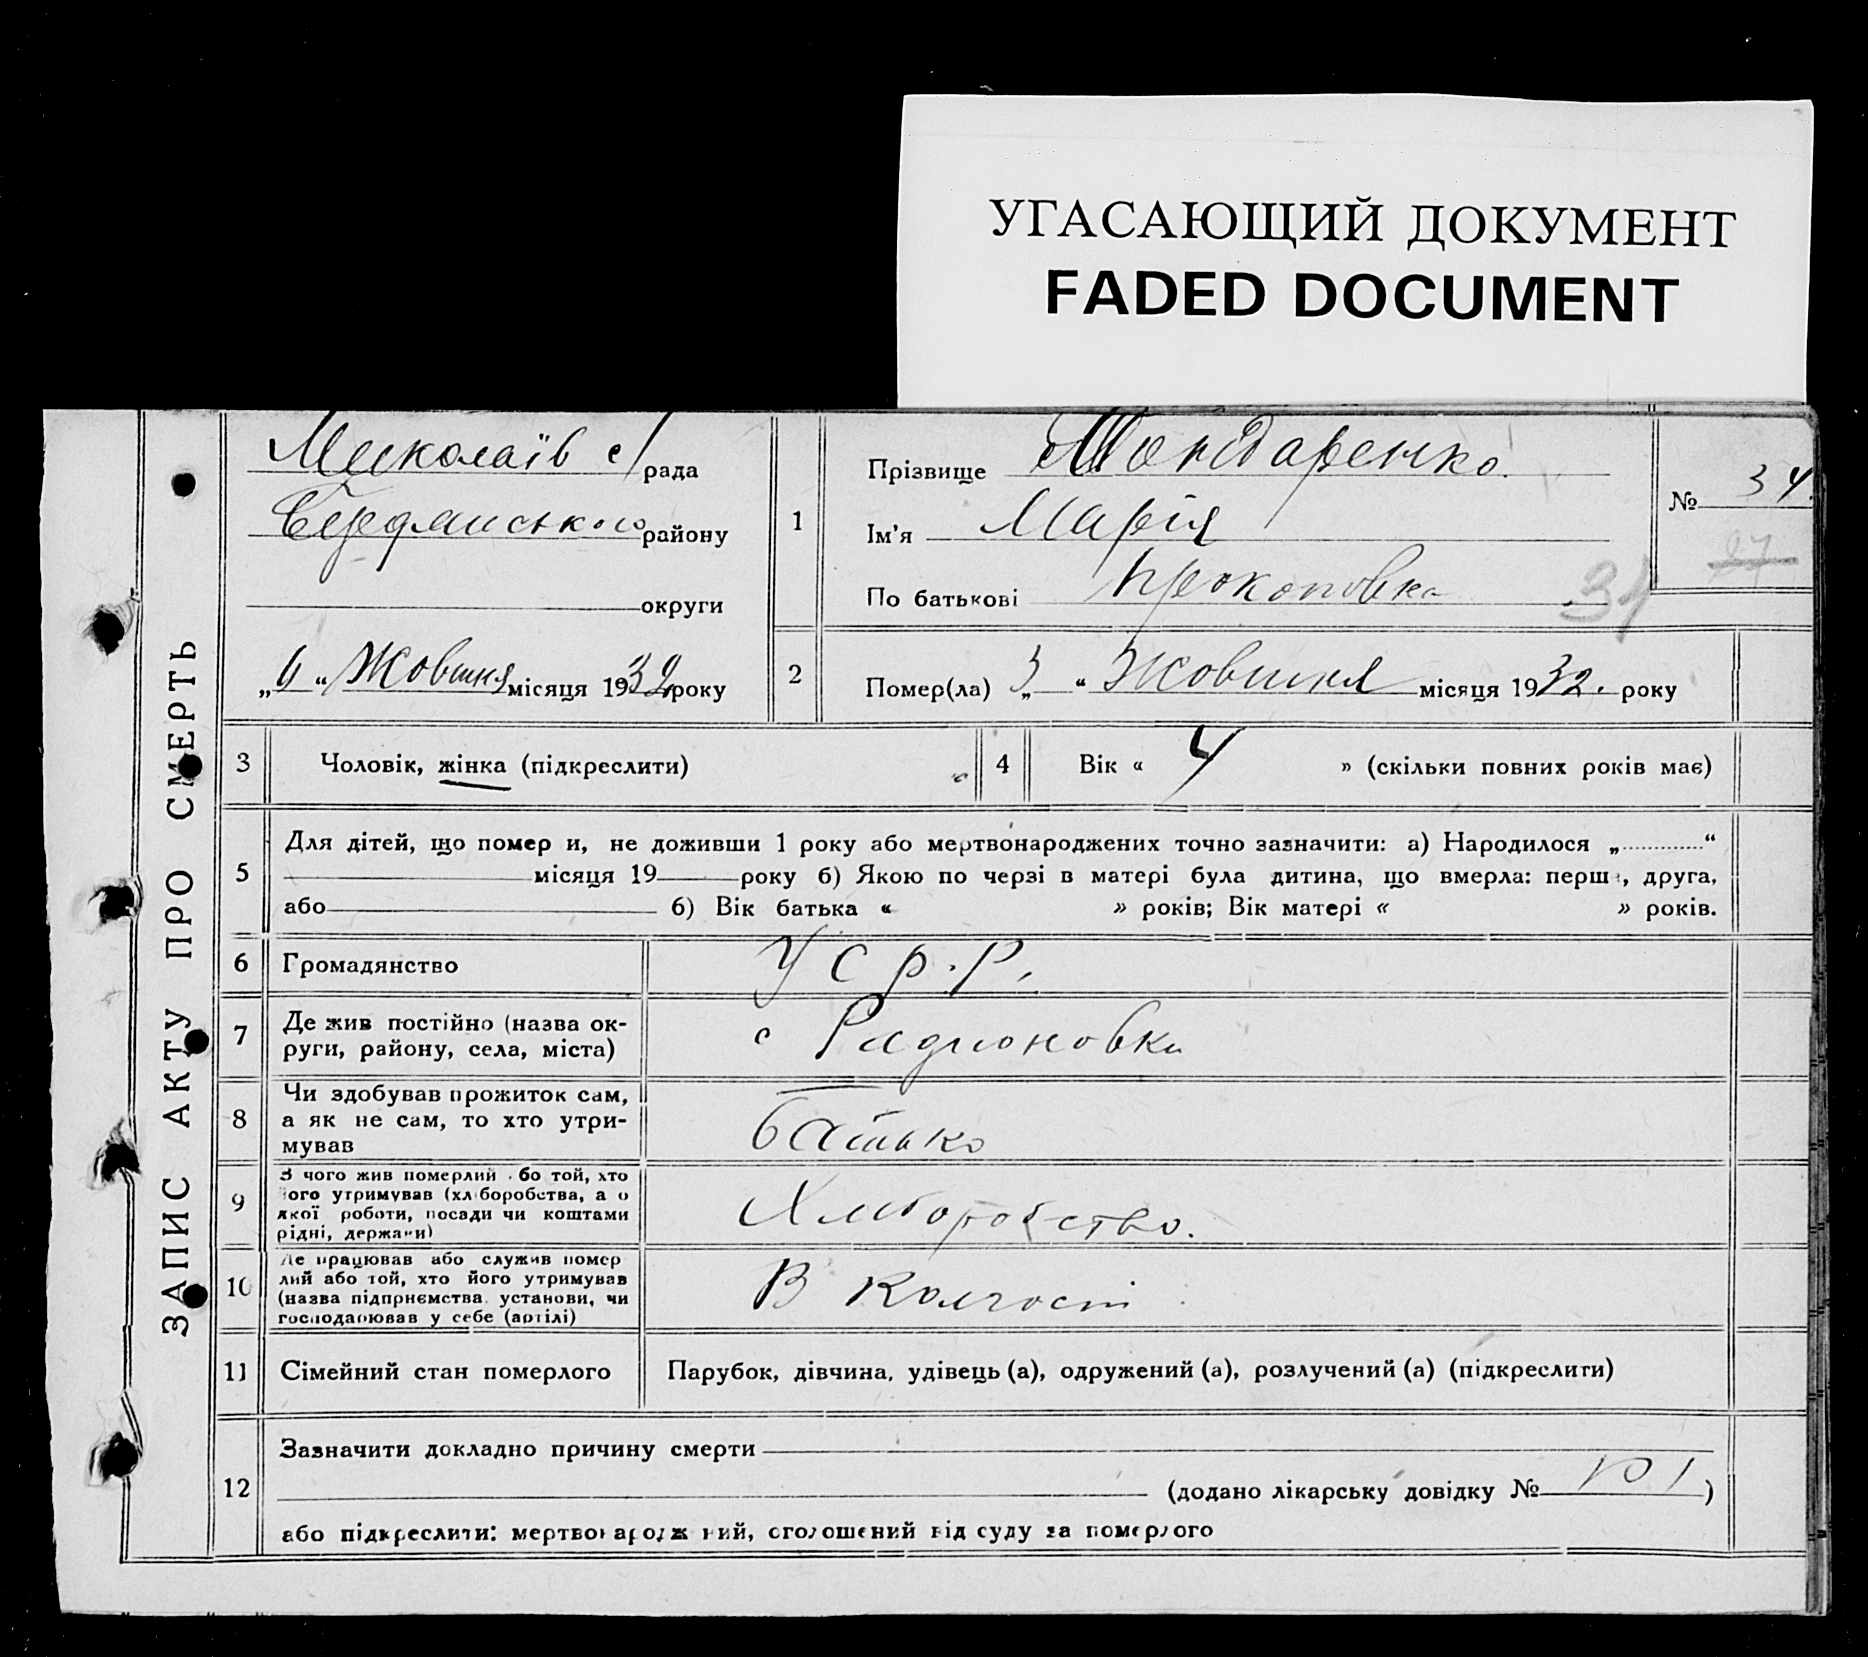 УГАСАЮЩИЙ ДОКУМЕНТ
FADED DOCUMENT
ЗАПИС АКТУ ПРО СМЕРТЬ
Миколаїв с/рада
Бердянського району
округи
„4“ Жовтня місяця 1932 року
1
Прізвище Мондаренко.
Ім'я Марія
По батькові Прокоповна
№ 34
27
34
2
Помер(ла) „3“ Жовтня місяця 1932. року
3 Чоловік, жінка (підкреслити)
4 Вік « 4 » (скільки повних років має)
5
Для дітей, що помер и, не доживши 1 року або мертвонароджених точно зазначити: а) Народилося „ “
місяця 19 року б) Якою по черзі в матері була дитина, що вмерла: перш , друга,
або б) Вік батька « » років; Вік матері « » років.
6 Громадянство У С Р. Р.
7
Де жив постійно (назва ок-
руги, району, села, міста)
с Радионовка
8
Чи здобував прожиток сам,
а як не сам, то хто утри-
мував
батько
9
З чого жив померлий бо той, хто
ого утримував (хл боробства, а о
якої роботи, посади чи коштами
рідні, держави)
Хліборобство.
10
Де працював або служив помер
лий або той, хто його утримував
(назва підприємства, установи, чи
господарював у себе (артілі)
В колгості
11 Сімейний стан померлого
Парубок, дівчина, удівець (а), одружений (а), розлучений (а) (підкреслити)
12
Зазначити докладно причину смерти
(додано лікарську довідку № )
або підкреслити: мертвонароджений, оголошений від суду за померлого